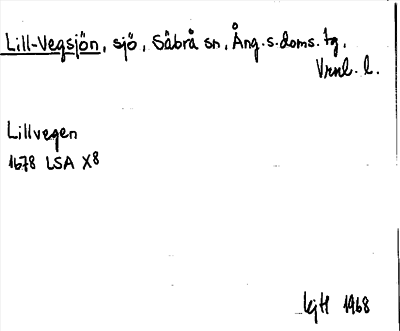 Lill-Vegsjön, sjö, Säbrå sn, Ång.s.doms.tg,
Vrnl. l.
Lillvegen
1678 LSA X8
1968